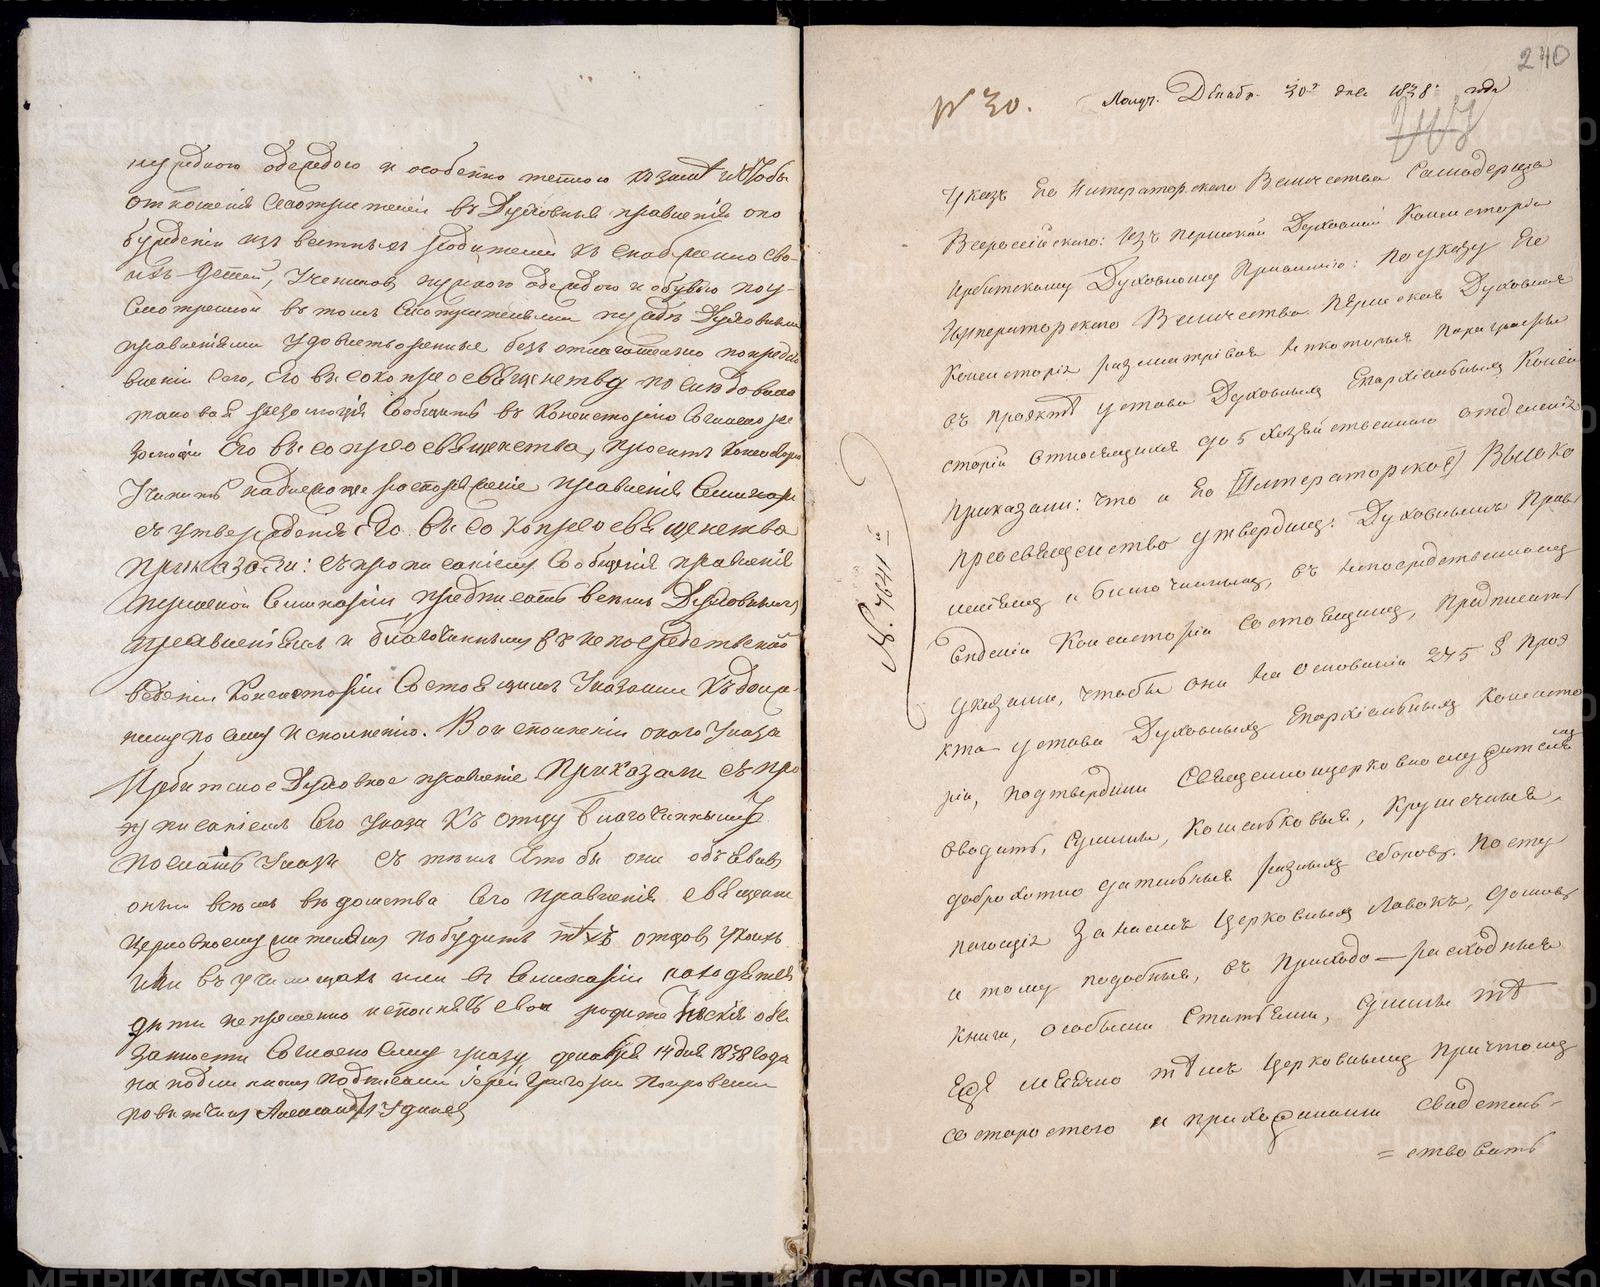 нужною одеждою и особенно теплою къ зимѣ и чтобы
отношенія Смотрителей въ Духовныя правленія о по
бужденіи извѣстныхъ родителей къ снабженію сво-
ихъ детей, Учениковъ нужною одеждою и обувью по у-
смотренію въ томъ Смотрителями нуждъ Духовными
правленіями удовлетворяемы безъ отлагательно
вленіи сего, Его Высокопреосвященству последовала
таковая резолюція Сообщить въ Консисторію Согласно ре
золюціи Его Высокопреосвященства, просить Консисторію
Учинить надлежащее распоряженіе правленія Семинаріи
съ утвержденія Его Высокопреосвященства
Приказали: съ прописаніемъ Сообщенія правленія
пермской Семинаріи предписать всемъ Духовнымъ
правленіямъ и благочиннымъ въ непосредственномъ
веденіи Консисторіи Состоящимъ Указами къ долж-
ному по сему исполненію. Во исполненіи онаго Указа
Ирбитское Духовное правленіе Приказали съ про
писаніемъ Сего Указа къ отцу благочинному
послать Указъ съ темъ чтобы они объявивъ
оный всемъ ведомства Сего правленія священно
церковнослужителямъ побудить тѣхъ отцовъ у коихъ
или въ училищахъ или въ Семинаріи находятся
дети непременно исполнять свои родительскія обя
занности Согласно сему указу декабря 14 дня 1838 года
на подлинномъ подписали Іерей Григорій Попровскій
повытчикъ Александръ Удинцев
240
№ 30. Получ. Декабр. 30го дня 1838. года
Указъ Его Императорскаго Величества Самодержца
Всероссійскаго: изъ Пермской Духовной Консисторіи
Ирбитскому Духовному Правленію: По указу Его
Императорскаго Величества Пермская Духовная
Консисторія разсматривая некоторыя параграфы
въ проэктѣ устава Духовныхъ Епархіальныхъ Конси
сторій относящіяся до 5 хозяйственнаго отделенія
Приказали: что и Его [Императорское] Высоко
преосвященство утвердилъ: Духовнымъ Прав
леніямъ и благочиннымъ, въ непосредственномъ
веденіи Консисторіи состоящимъ, предписать
указами, чтобы они на основаніи 245 § проэ
кта устава Духовныхъ Епархіальныхъ Консисто
рій, подтвердили Священноцерковнослужителямъ
вводить, суммы, Кошельковыя, Кружечныя,
доброхотно дательныя разныхъ сборовъ. По сту
пающія за наемъ Церковныхъ Лавокъ, домовъ
и тому подобныя, въ Приходо-расходныя
книги, особыми Статьями, суммы тѣ
Ежемѣсячно тѣмъ церковнымъ причтомъ
со старостою и прихожанами свидетель-
= ствовать
№. 7641й